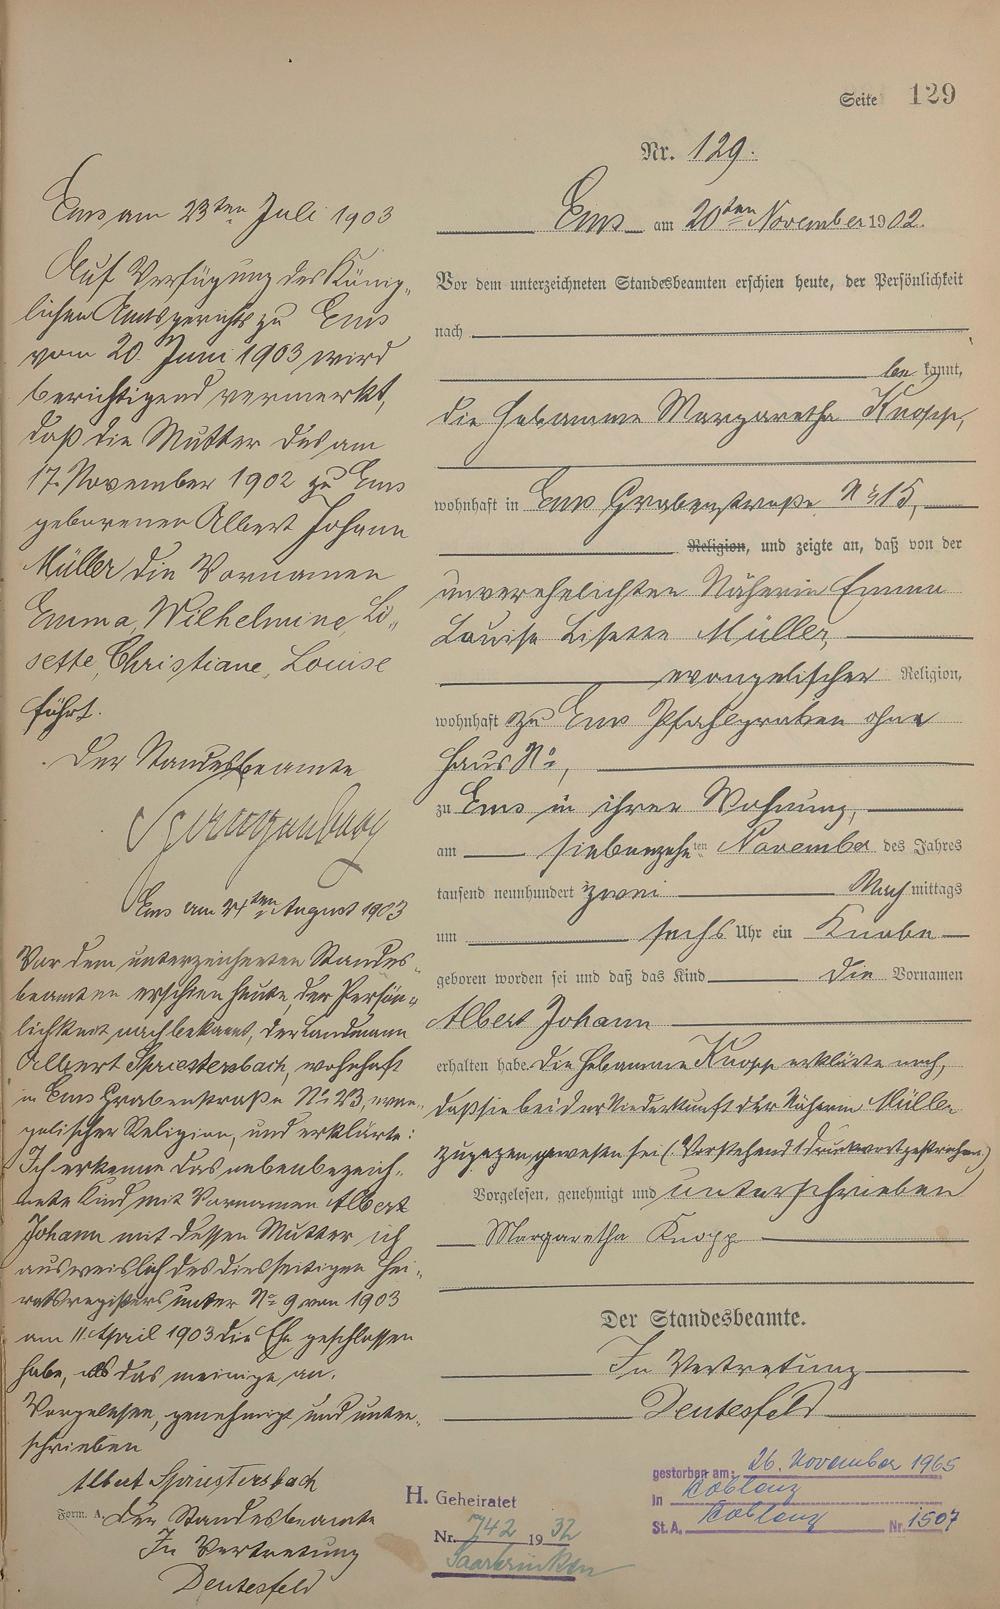 Seite 129
Nr. 129.
Ems am 20ten November 1902.
Vor dem unterzeichneten Standesbeamten erschien heute, der Persönlichkeit
nach
be kannt,
die Hebamme Margaretha Knopp,
wohnhaft in Ems Grabenstraße No 15,
Religion, und zeigte an, daß von der
unverehelichten Näherin Emma
Louise Lisette Müller,
evangelischer Religion,
wohnhaft zu Ems Pfahlgraben ohne
Haus No,
zu Ems in ihrer Wohnung,
am siebenzehnten November des Jahres
tausend neunhundert zwei Nachmittags
um sechs Uhr ein Knabe
geboren worden sei und daß das Kind die Vornamen
Albert Johann
erhalten habe. Die Hebamme Knopp erklärte noch,
daß sie bei der Niederkunft der Näherin Müller
zugegen gewesen sei (Vorstehend 1 Druckwort gestrichen.)
Vorgelesen, genehmigt und unterschrieben
Margaretha Knopp
Der Standesbeamte.
In Vertretung
Deutesfeld
Ems am 23ten Juli 1903
Auf Verfügung des König-
lichen Amtsgerichts zu Ems
vom 20. Juni 1903 wird
berichtigend vermerkt,
daß die Mutter des am
17. November 1902 zu Ems
geborenen Albert Johann
Müller die Vornamen
Emma, Wilhelmine, Li-
sette, Christiane, Louise
führt.
Der Standesbeamte
Ems am 24ten August 1903
Vor dem unterzeichneten Standes-
beamten erschien heute, der Persön-
lichkeit nach bekannt, der Landmann
Albert Spriestersbach, wohnhaft
in Ems Grabenstraße No 23, evan-
gelischer Religion, und erklärte:
Ich erkenne das nebenbezeich-
nete Kind mit Vornamen Albert
Johann mit dessen Mutter ich
ausweislich des diesseitigen Hei-
ratsregisters unter No 9 von 1903
am 11. April 1903 die Ehe geschlossen
habe, als das meinige an.
Vorgelesen, genehmigt und unter-
schrieben
Albert Spriestersbach
Form. A. Der Standesbeamte
In Vertretung
Deutesfeld
H. Geheiratet
Nr. 742 1932
Saarbrücken
gestorben am: 26. November 1965
in Koblenz
St.A. Koblenz Nr. 1507